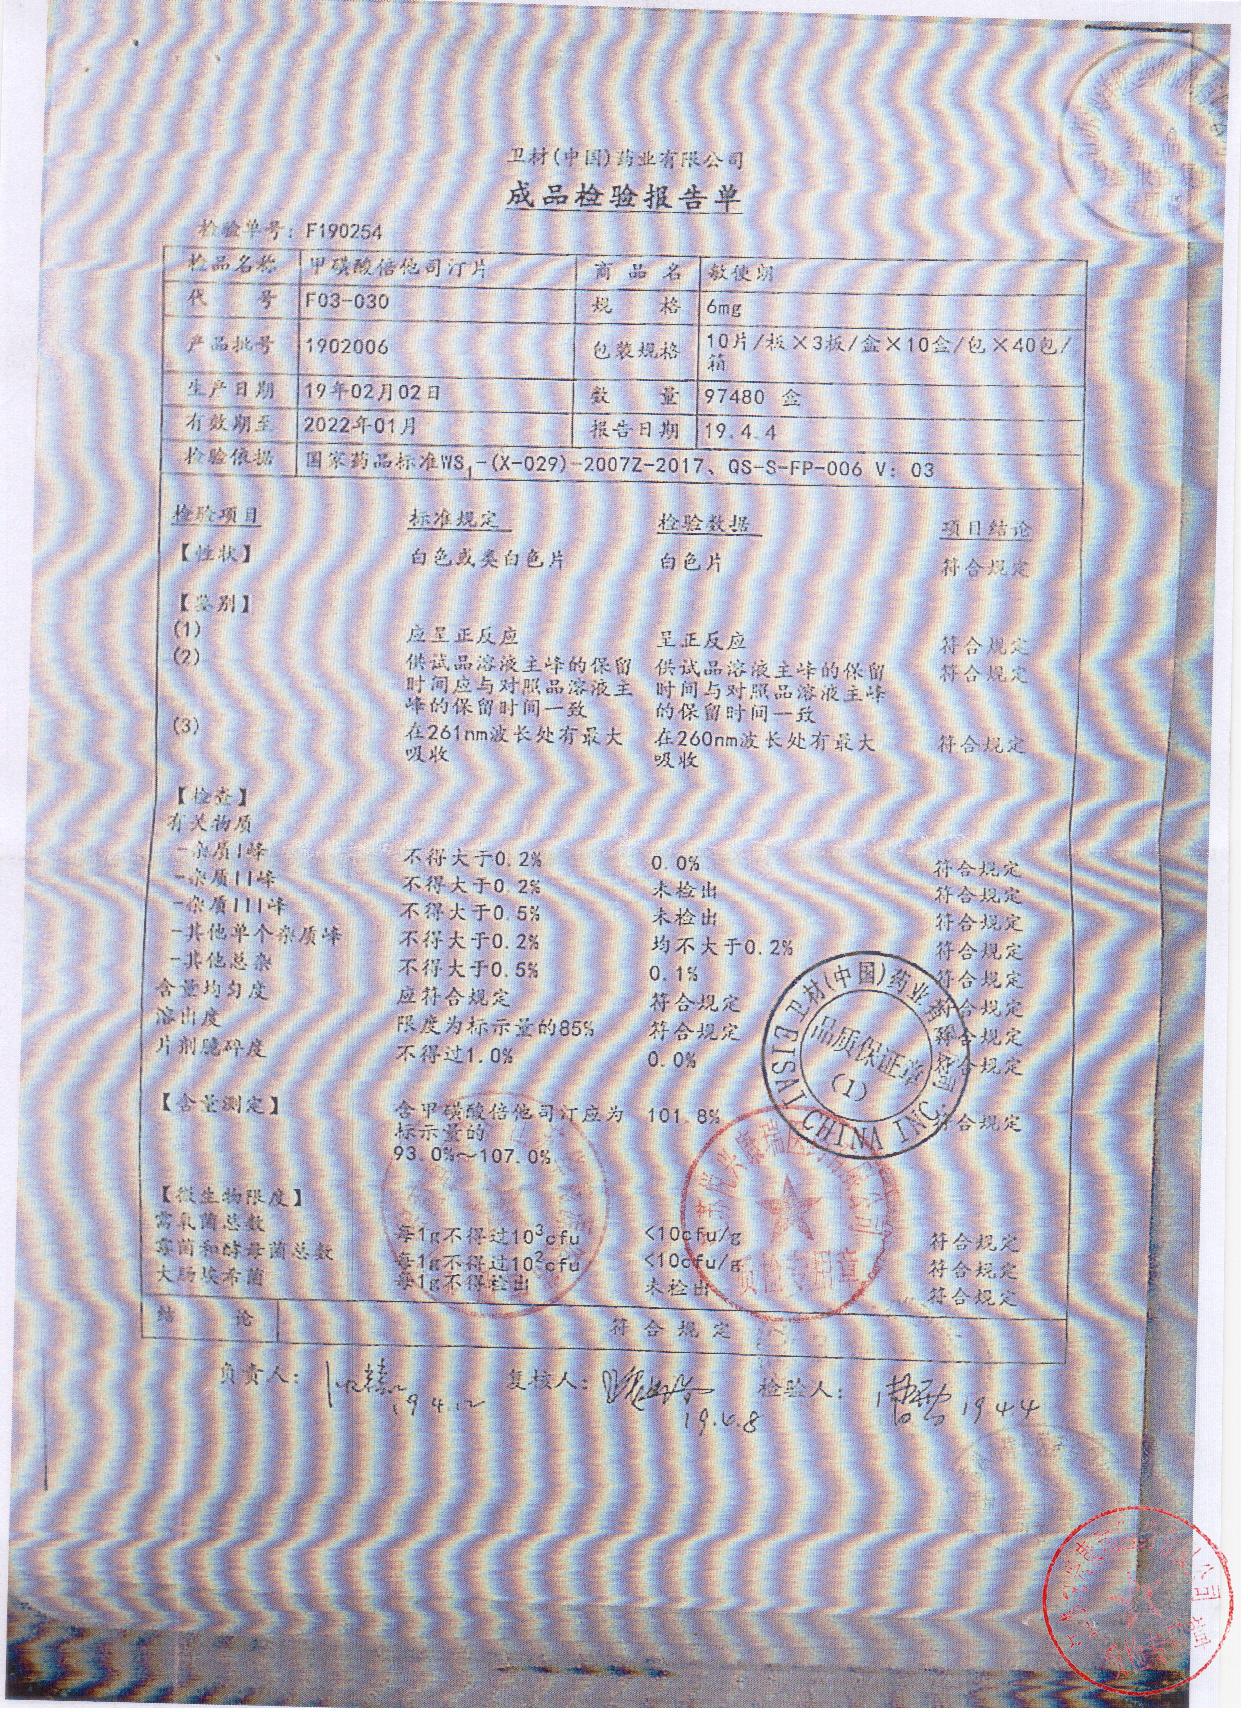 卫材(中国)药业有限公司
成品检验报告单
检验单号: F190254
检品名称 甲磺酸倍他司汀片 商品名 敏使朗
代号 F03-030 规格 6mg
产品批号 1902006 包装规格 10片/板×3板/盒×10盒/包×40包/
箱
生产日期 19年02月02日 数量 97480 盒
有效期至 2022年01月 报告日期 19.4.4
检验依据 国家药品标准WS1-(X-029)-2007Z-2017、QS-S-FP-006 V: 03
检验项目 标准规定 检验数据 项目结论
【性状】 白色或类白色片 白色片 符合规定
【鉴别】
(1) 应呈正反应 呈正反应 符合规定
(2) 供试品溶液主峰的保留 供试品溶液主峰的保留 符合规定
时间应与对照品溶液主 时间与对照品溶液主峰
峰的保留时间一致 的保留时间一致
(3) 在261nm波长处有最大 在260nm波长处有最大 符合规定
吸收 吸收
【检查】
有关物质
-杂质I峰 不得大于0.2% 0.0% 符合规定
-杂质II峰 不得大于0.2% 未检出 符合规定
-杂质III峰 不得大于0.5% 未检出 符合规定
-其他单个杂质峰 不得大于0.2% 均不大于0.2% 符合规定
-其他总杂 不得大于0.5% 0.1% 符合规定
含量均匀度 应符合规定 符合规定 符合规定
溶出度 限度为标示量的85% 符合规定 符合规定
片剂脆碎度 不得过1.0% 0.0% 符合规定
【含量测定】 含甲磺酸倍他司汀应为 101.8% 符合规定
标示量的
93.0%~107.0%
【微生物限度】
需氧菌总数 每1g不得过10³cfu <10cfu/g 符合规定
霉菌和酵母菌总数 每1g不得过10²cfu <10cfu/g 符合规定
大肠埃希菌 每1g不得检出 未检出 符合规定
结论 符合规定
卫材(中国)药业有限公司
品质保证章
(1)
EISAI CHINA INC.
质检专用章
负责人: 19.4.12 复核人: 19.4.8 检验人: 曹雪 19.4.4